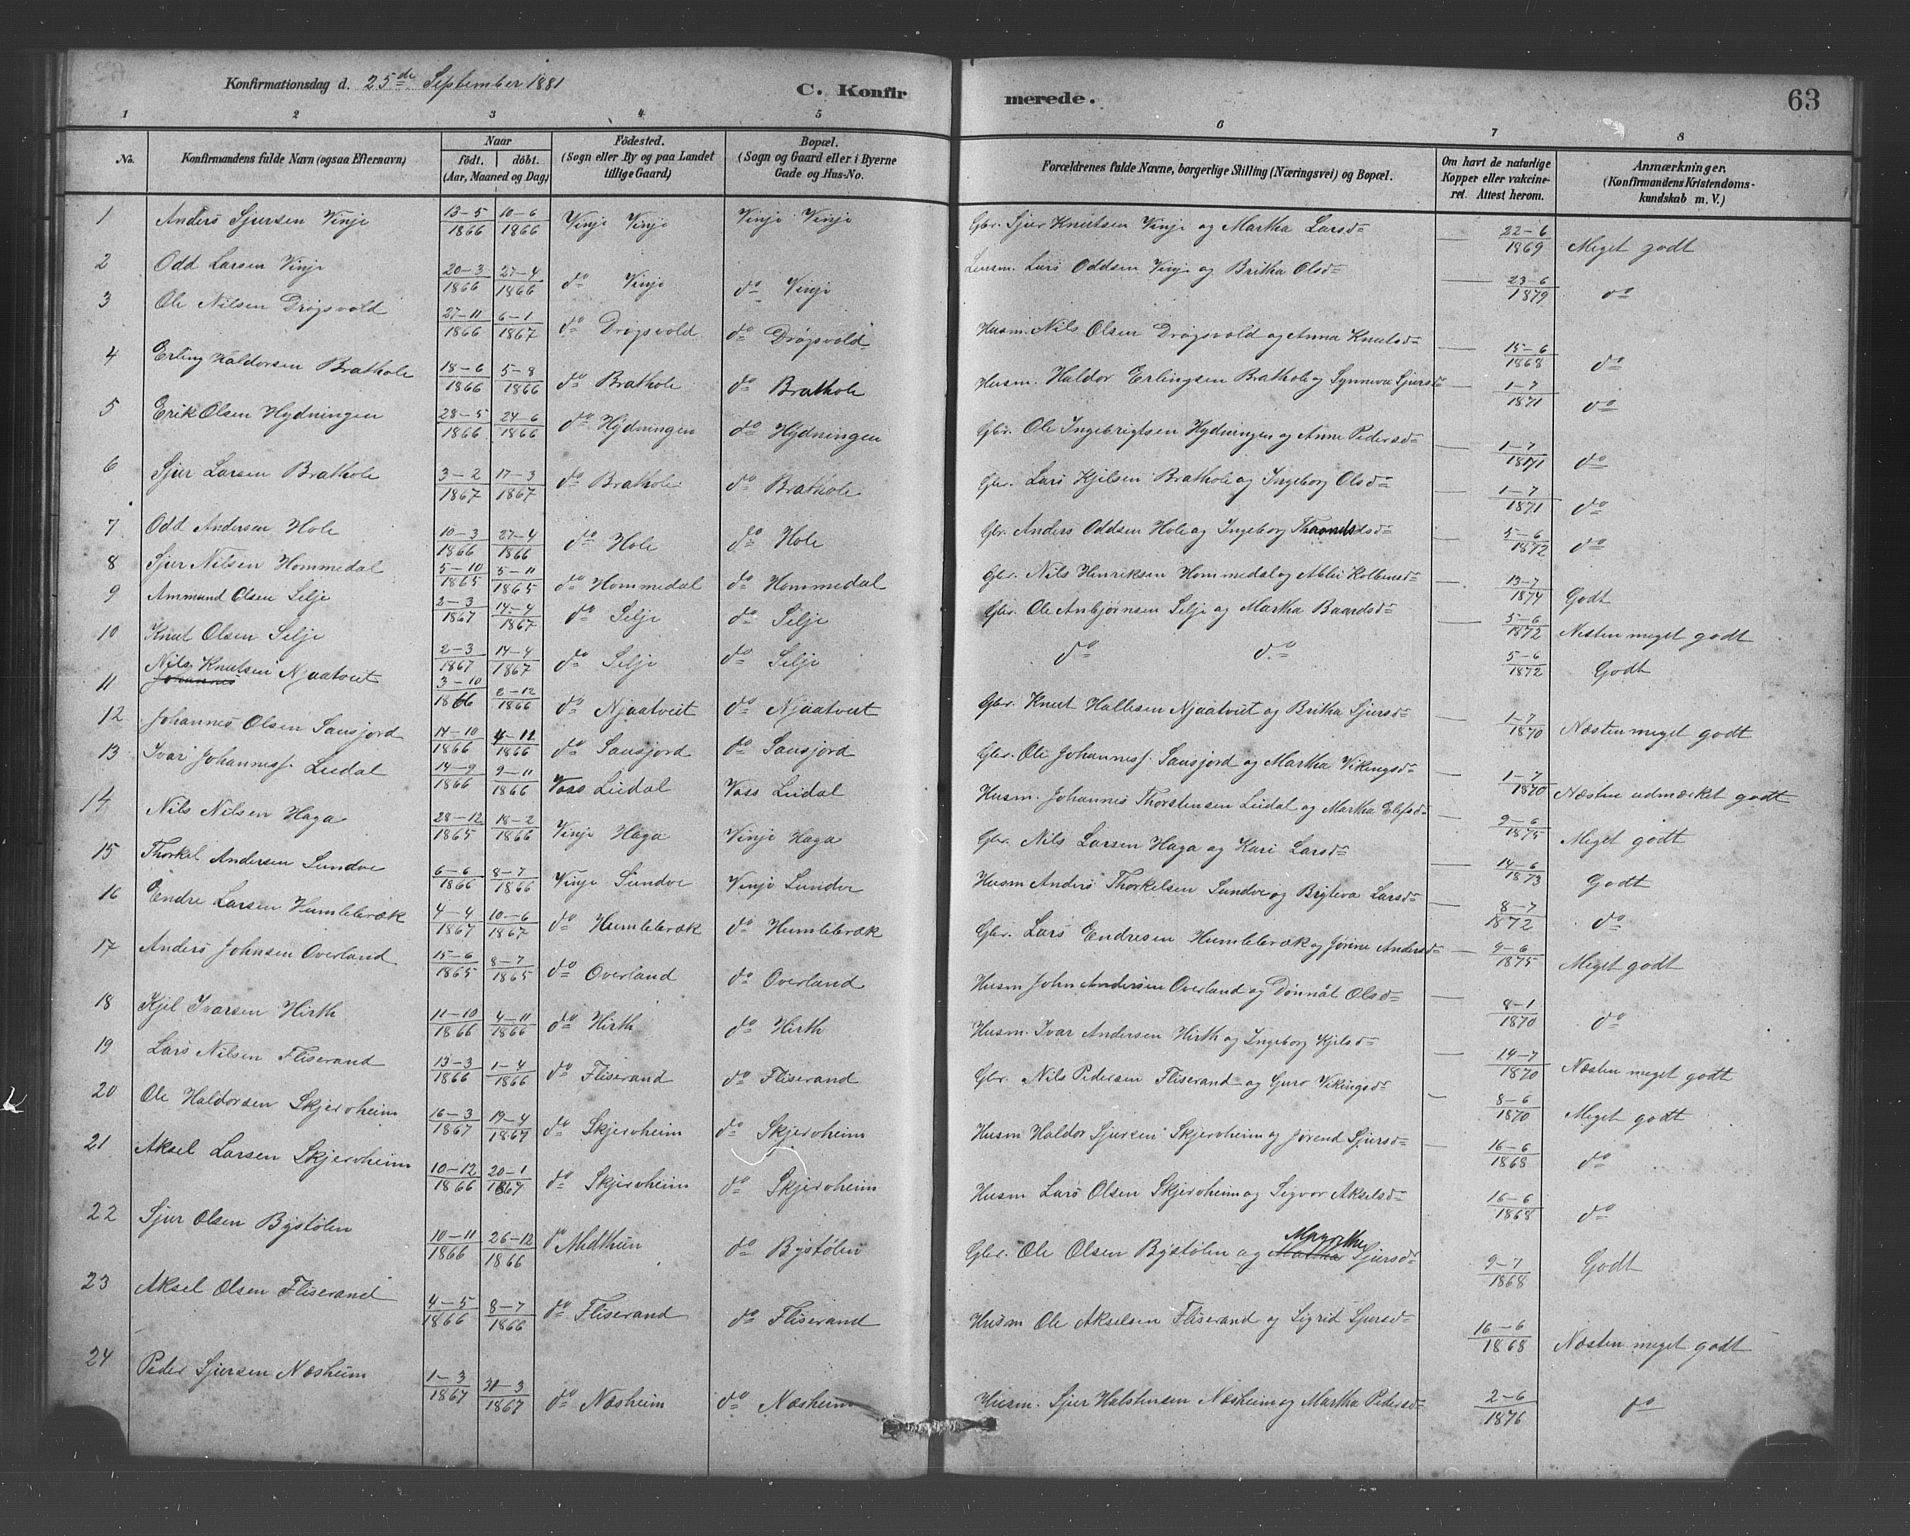 Konfirmationsdag d. 25de September 1881 C. Konfirmerede. 63
1 2 3 4 5 6 7 8
No. Konfirmandens fulde Navn (ogsaa Efternavn) Naar födt. döbt. (Aar, Maaned og Dag) Födested. (Sogn eller By og paa Landet tillige Gaard) Bopæl. (Sogn og Gaard eller i Byerne Gade og Hus-No. Forældrenes fulde Navne, borgerlige Stilling (Næringsvei) og Bopæl. Om havt de naturlige Kopper eller vakcineret. Attest herom. Anmærkninger. (Konfirmandens Kristendomskundskab m. V.)
1 Anders Sjursen Vinje 13-5 1866 10-6 1866 Vinje Vinje Vinje Vinje Gbr. Sjur Knutsen Vinje og Martha Larsd — 22-6 1869 Meget godt
2 Odd Larsen Vinje 20-3 1866 27-4 1866 do Vinje do Vinje Lensm. Lars Oddsen Vinje og Britha Olsd — 23-6 1879 do
3 Ole Nilsen Drøgsvold 27-11 1866 6-1 1867 do Drøgsvold do Drøgsvold Husm. Nils Olsen Drøgsvold og Anna Knutsd — 15-6 1868 do
4 Erling Haldorsen Brathole 18-6 1866 5-8 1866 do Brathole do Brathole Husm. Haldor Erlingsen Brathole og Synneva Sjursd 1-7 1871 do
5 Erik Olsen Hydningen 28-5 1866 24-6 1866 do Hydningen do Hydningen Gbr. Ole Ingebrigtsen Hydningen og Anne Pedersd — 1-7 1871 do
6 Sjur Larsen Brathole 3-2 1867 17-3 1867 do Brathole do Brathole Gbr. Lars Kjelsen Brathole og Ingeborg Olsd — 1-7 1871 do
7 Odd Andersen Hole 10-3 1866 27-4 1866 do Hole do Hole Gbr. Anders Oddsen Hole og Ingeborg — 5-6 1872 do
8 Sjur Nilsen Hommedal 5-10 1865 5-11 1865 do Hommedal do Hommedal Gbr. Nils Henriksen Hommedal og — 13-7 1874 Godt
9 Ammund Olsen Selje 2-3 1867 14-4 1867 do Selje do Selje Gbr. Ole Anbjørnsen Selje og Martha Baardsd — 5-6 1872 Næsten meget godt
10 Knut Olsen Selje 2-3 1867 14-4 1867 do Selje do Selje do do 5-6 1872 Godt
11 Nils Johannes Knutsen Njaatveit 3-10 1866 2-12 1866 do Njaatveit do Njaatveit Gbr. Knut Hallesen Njaatveit og Britha Sjursd — 1-7 1870 Næsten meget godt
12 Johannes Olsen Sausjord 14-10 1866 4-11 1866 do Sausjord do Sausjord Gbr. Ole Johannesf. Sausjord og Martha Vikingsd — 1-7 1870 Næsten udmærket godt
13 Ivar Johannesf. Lidal 14-9 1866 9-11 1866 Voss Lidal Voss Lidal Husm. Johannes Thorstensen Lidal og Martha — 9-6 1875 Meget godt
14 Nils Nilsen Haga 28-12 1865 18-2 1866 Vinje Haga Vinje Haga Gbr. Nils Larsen Haga og Kari Larsd — 14-6 1873 Godt
15 Thorkel Andersen Sundve 6-6 1866 8-7 1866 Vinje Sundve Vinje Sundve Husm Anders Thorkelsen Sundve og Brytteva Larsd — 8-7 1872 do
16 Endre Larsen Humlebræk 4-4 1867 10-6 1867 do Humlebræk do Humlebræk Gbr. Lars Endresen Humlebræk og Jørine Andersd — 9-6 1875 Meget godt
17 Anders Johnsen Overland 15-6 1865 8-7 1865 do Overland do Overland Husm John Andersen Overland og Olsd — 8-1 1870 do
18 Kjel Ivarsen Hirth 11-10 1866 4-11 1866 do Hirth do Hirth Husm. Ivar Andersen Hirth og Ingeborg Kjelsd — 14-7 1870 Næsten meget godt
19 Lars Nilsen Fliserand 13-3 1866 1-4 1866 do Fliserand do Fliserand Gbr. Nils Pedersen Fliserand og Guro Vikingsd — 8-6 1870 Meget godt
20 Ole Haldorsen Skjervheim 16-3 1867 19-4 1867 do Skjervheim do Skjervheim Husm Haldor Sjursen Skjervheim og Jørend Sjursd — 16-6 1868 do
21 Aksel Larsen Skjervheim 10-12 1866 20-1 1867 do Skjervheim do Skjervheim Husm Lars Olsen Skjervheim og Sigvor Akselsd 16-6 1868 do
22 Sjur Olsen Bystølen 10-11 1866 26-12 1866 do Midthun do Bystølen Gbr. Ole Olsen Bystølen og Martha Sjursd 9-7 1868 Godt
23 Aksel Olsen Fliserand 4-5 1866 8-7 1866 do Fliserand do Fliserand Husm Ole Akselsen Fliserand og Sigrid Sjursd 16-6 1868 Næsten meget godt
24 Peder Sjursen Næsheim 1-3 1867 31-3 1867 do Næsheim do Næsheim Husm. Sjur Halstensen Næsheim og Martha Pedersd 2-6 1876 do